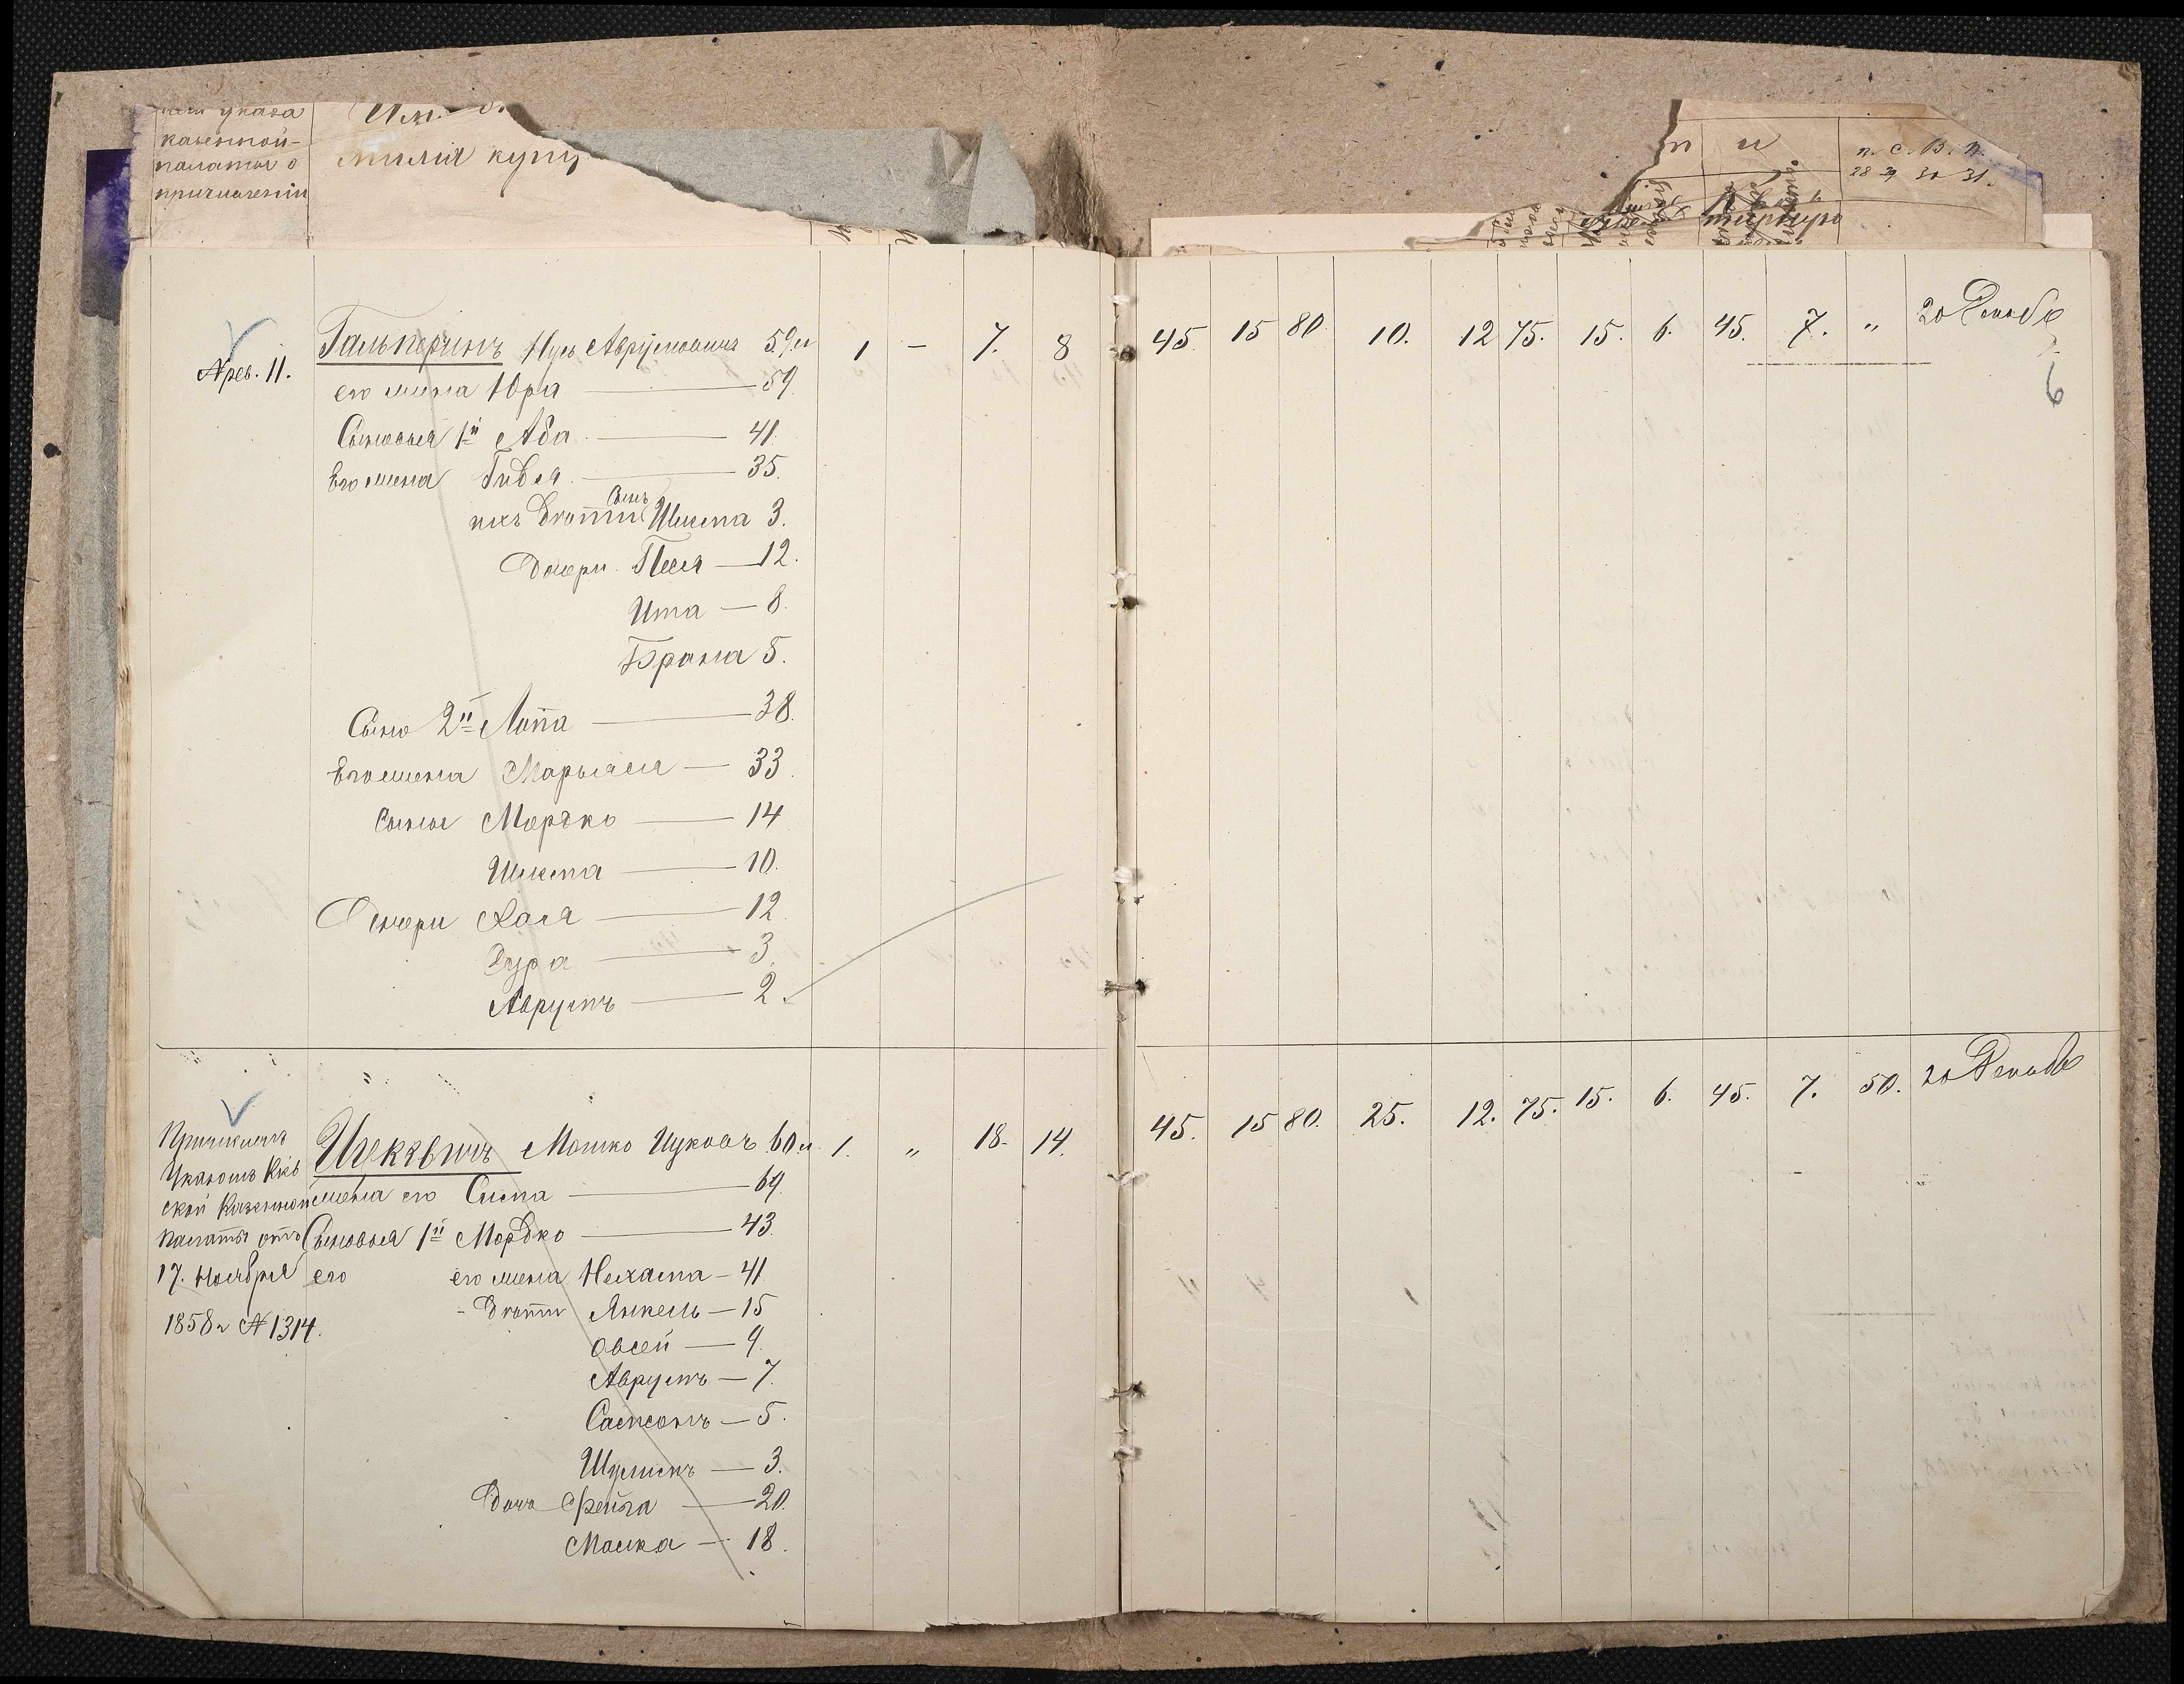 указа
казенной-
палаты о
причислении
милия купц
п и
п. с. В. п.
28 29 30 31.
№ рев. 11.
Гальперинъ Нусь Аврумовичъ 59 л 1 - 7. 8 45. 15 80 10. 12 75. 15. 6. 45. 7. " 20 Декабр
его жена Юра — 59
6
Сыновья 1й Аба — 41.
Его жена Гивля — 35.
ихъ дѣти Сынъ Шлема 3.
Дочери Песя — 12.
Ита — 8.
Брана 5.
Сынъ 2й Липа — 38.
Его жена Марьяся — 33
Сыны Мордко — 14
Шлема — 10.
Дочери Хая — 12
Сура — 3.
Аврумъ — 2.
Причисленъ
Указомъ Кіев
ской Казенной
палаты отъ
17. Ноября
1858 г № 1314.
Ицковичъ Мошко Ицковъ 60 л 1. " 18. 14. 45. 15 80. 25. 12. 75. 15. 6. 45. 7. 50. 20 Декабр
жена его Сима — 69
Сыновья 1й Мордко — 43.
его его жена Нехама — 41
- дѣти Янкель — 15
Овсей — 9.
Аврумъ — 7.
Самсонъ — 5.
Шулимъ — 3.
Дочь Фейга — 20.
Маska — 18.